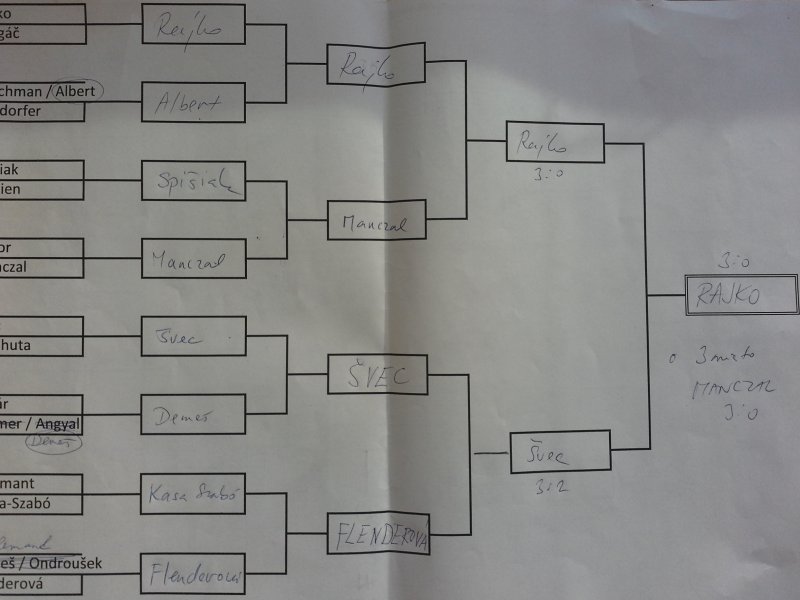 ko
gáč
chman / Albert
dorfer
iak
ien
or
nczal
huta
ár
mer / Angyal
Demeš
mant
a-Szabó
eš / Ondroušek
derová
Rajko
Albert
Spišiak
Manczal
Švec
Demeš
Kasa Szabó
Flenderová
Rajko
Manczal
ŠVEC
FLENDEROVÁ
Rajko
3:0
Švec
3:2
3:0
RAJKO
o 3 miesto
MANCZAL
3:0